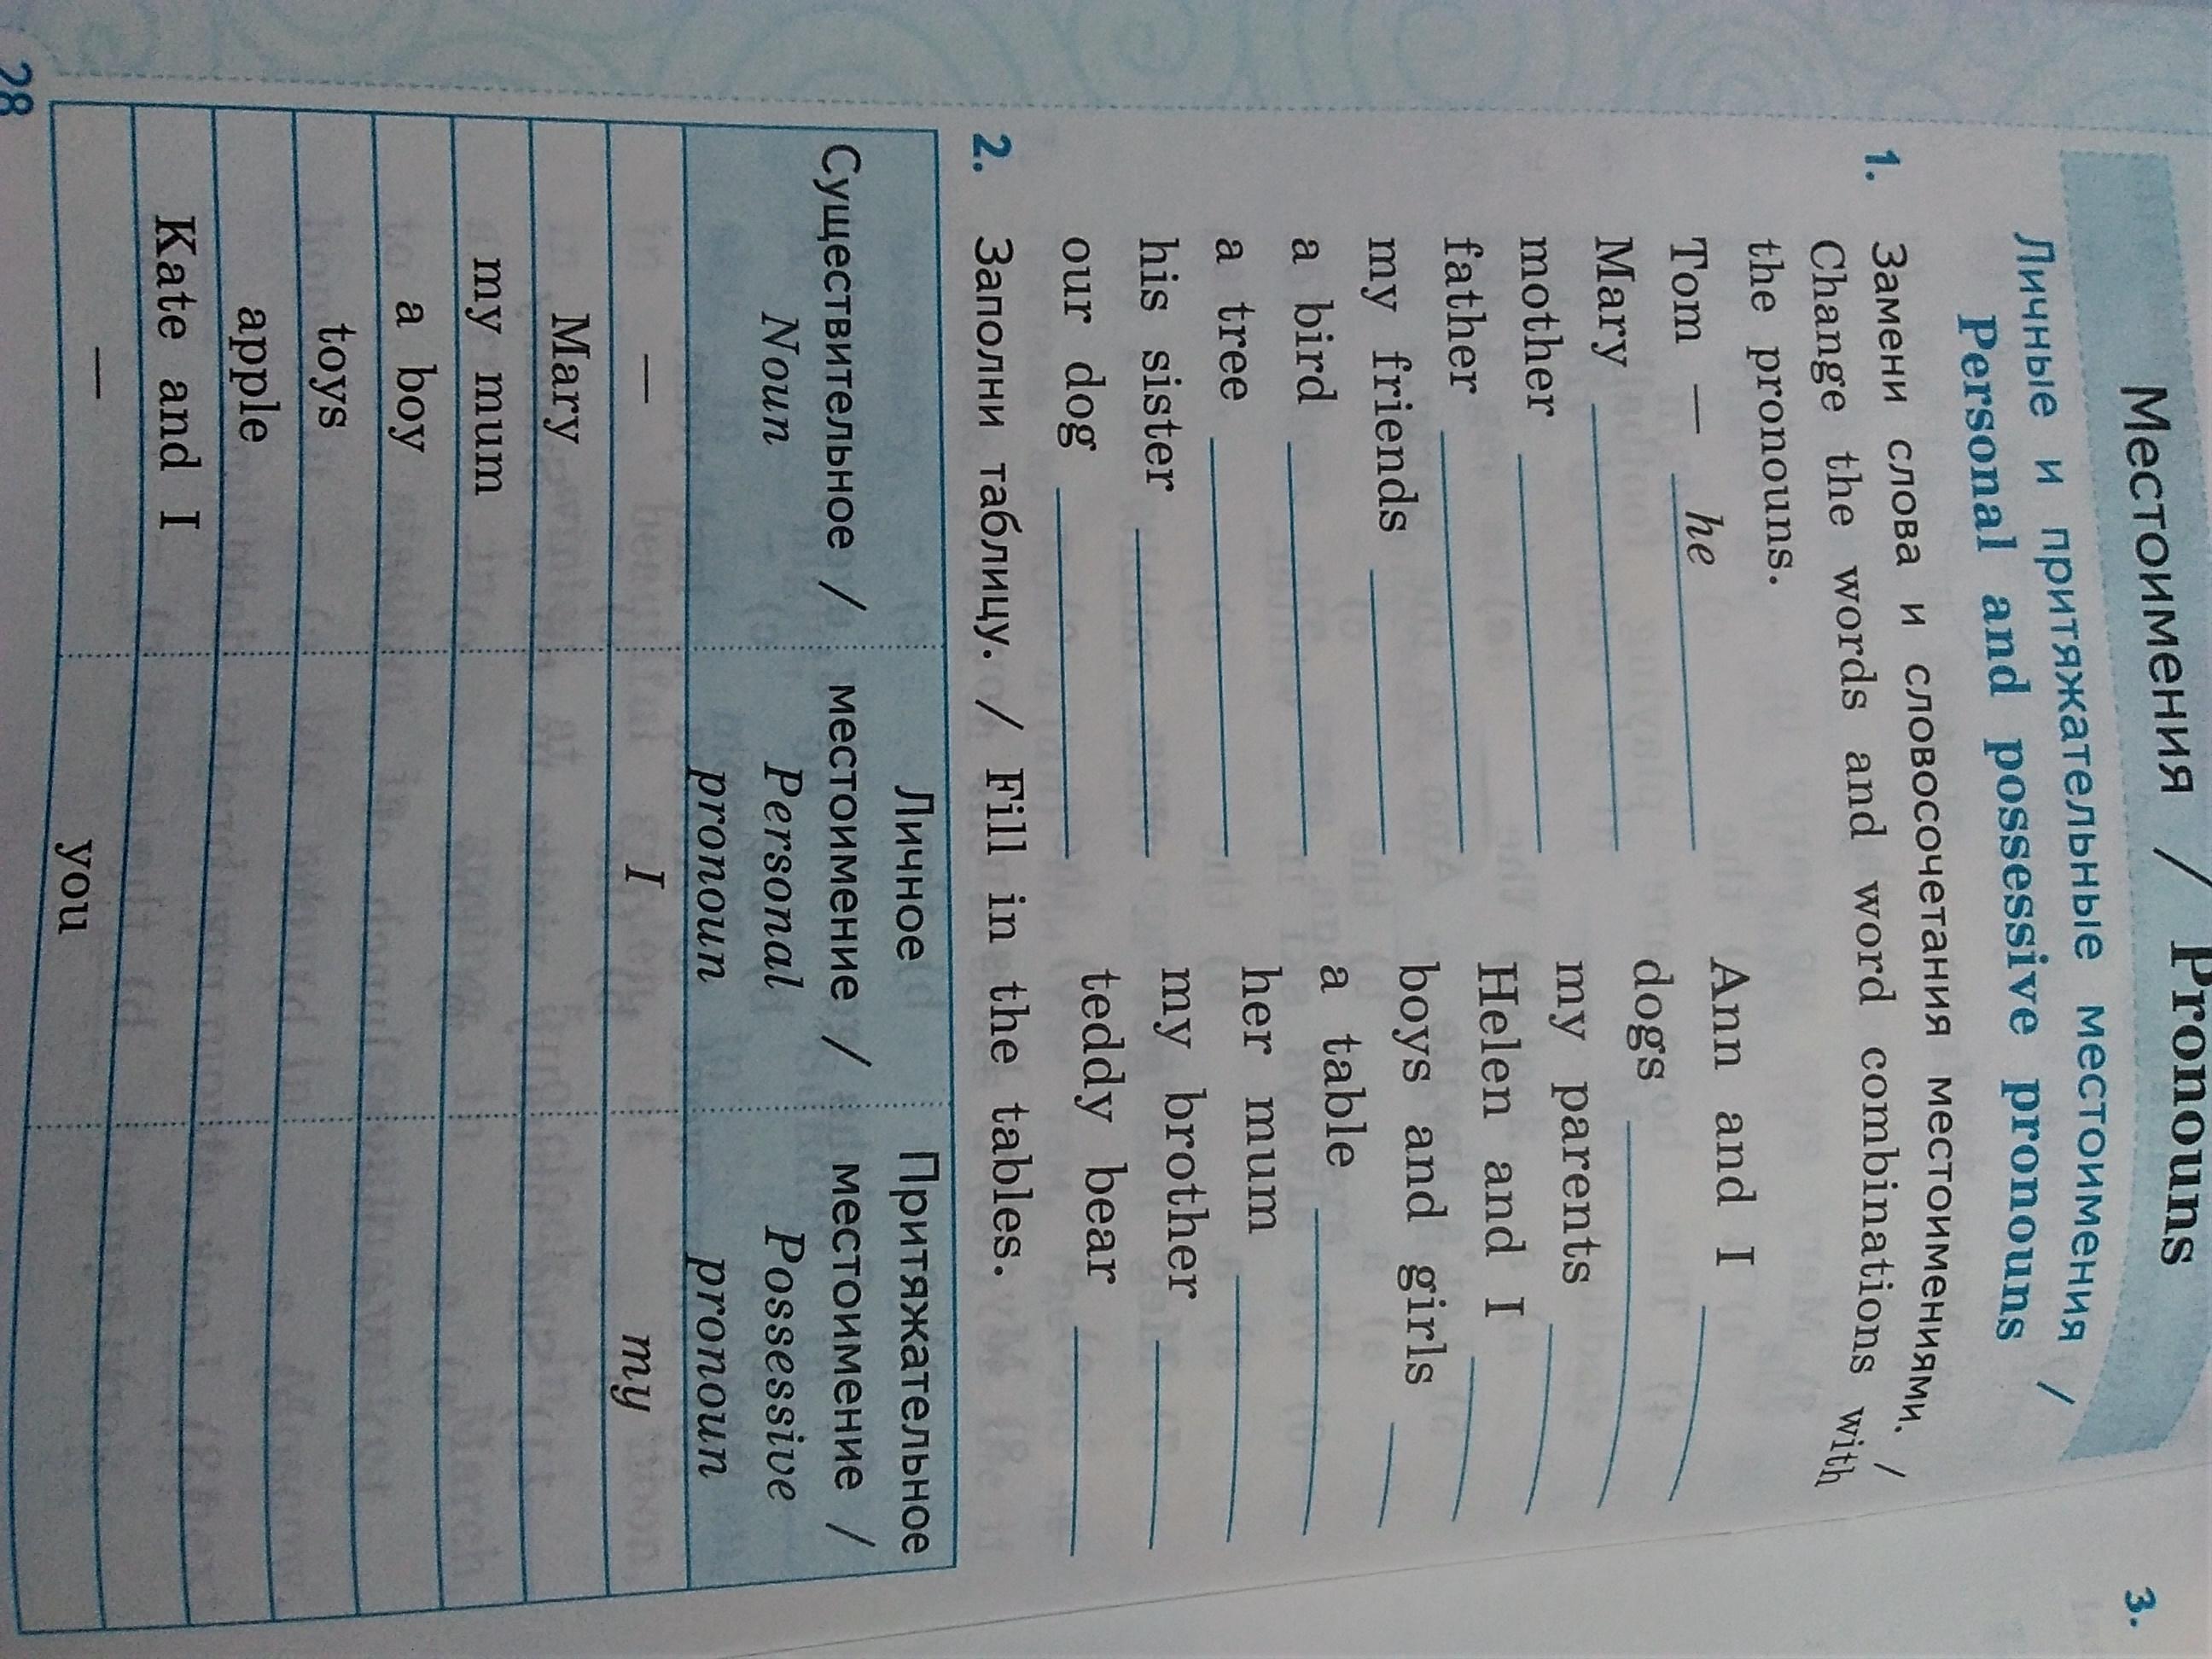 Местоимения / Pronouns
Личные и притяжательные местоимения /
Personal and possessive pronouns
1. Замени слова и словосочетания местоимениями. /
Change the words and word combinations with
the pronouns.
Tom — he
Mary
mother
father
my friends
a bird
a tree
his sister
our dog
Ann and I
dogs
my parents
Helen and I
boys and girls
a table
her mum
my brother
teddy bear
2. Заполни таблицу. / Fill in the tables.
Существительное /
Noun
Личное
местоимение /
Personal
pronoun
Притяжательное
местоимение /
Possessive
pronoun
— I my
Mary
my mum
a boy
toys
apple
Kate and I
— you
28
3.